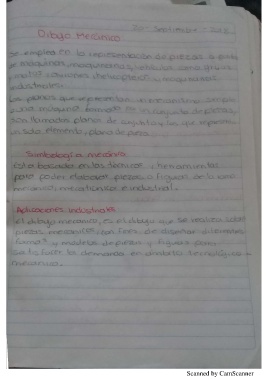 Dibujo Mecánico
Se emplea en la representación de piezas o partes
de máquinas, maquinarias, vehículos como grúas y
motos, aviones, helicópteros y maquinarias
industriales.
Los planos que representan un mecanismo simple
o una máquina formada por un conjunto de piezas,
son llamados planos de conjunto; y los que representan
un solo elemento, plano de pieza.
Simbología mecánica
Esta basada en las figuras y herramientas
para poder elaborar piezas o figuras de la rama
mecánica, mecatrónica e industrial.
Aplicaciones industriales
El dibujo mecánico, es el dibujo que se realiza sobre
piezas mecánicas con fines de diseñar diferentes
formas y modelos de piezas y figuras para
satisfacer la demanda en ámbito tecnológico
mecánico.
Scanned by CamScanner